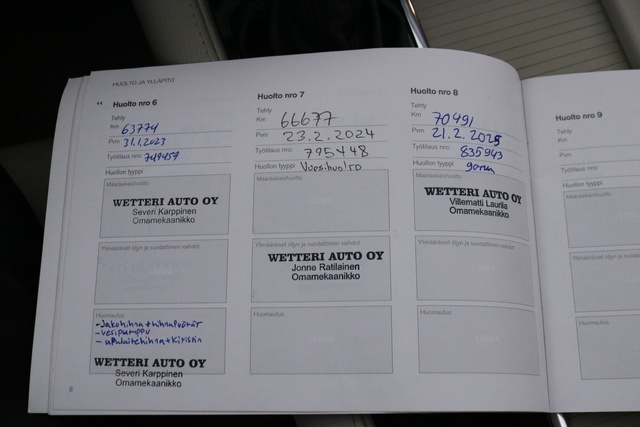 HUOLTO JA YLLÄPITO
Huolto nro 6
Tehty
Km 63774
Pvm 31.1.2023
Työtilaus nro: 749459
Huollon tyyppi
Määräaikaishuolto
WETTERI AUTO OY
Severi Karppinen
Omamekaanikko
Ylimääräiset öljyn ja suodattimen vaihdot
Huomautus
-Jakohihna + hihnapyörät
-vesipumppu
-apulaitehihna + kiristin
WETTERI AUTO OY
Severi Karppinen
Omamekaanikko
6
Huolto nro 7
Tehty
Km 66677
Pvm 23.2.2024
Työtilaus nro: 795448
Huollon tyyppi Vuosihuolto
Määräaikaishuolto
Ylimääräiset öljyn ja suodattimen vaihdot
WETTERI AUTO OY
Jonne Ratilainen
Omamekaanikko
Huomautus
Huolto nro 8
Tehty
Km 70491
Pvm 21.2.2025
Työtilaus nro: 835943
Huollon tyyppi
Määräaikaishuolto
WETTERI AUTO OY
Villematti Laurila
Omamekaanikko
Ylimääräiset öljyn ja suodattimen vaihdot
Huomautus
Huolto nro 9
Tehty
Km
Pvm
Työtilaus nro:
Huollon tyyppi
Huomautus